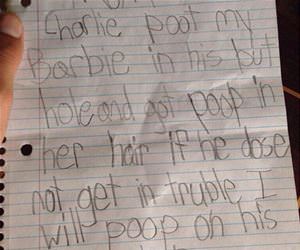 Charlie poot my
Barbie in his but
hole and got poop in
her hair if he dose
not get in truble I
will poop on his